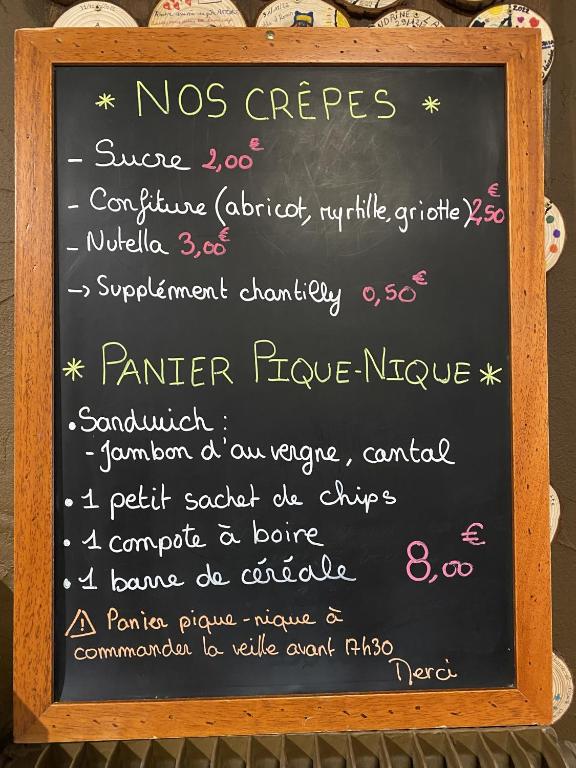 * NOS CRÊPES *
- Sucre 2,00€
- Confiture (abricot, myrtille, griotte) 2,50€
- Nutella 3,00€
-> Supplément chantilly 0,50€
* PANIER PIQUE-NIQUE *
• Sandwich :
- Jambon d'auvergne, cantal
• 1 petit sachet de chips
• 1 compote à boire
• 1 barre de céréale 8,00€
⚠ Panier pique-nique à
commander la veille avant 17h30
Merci